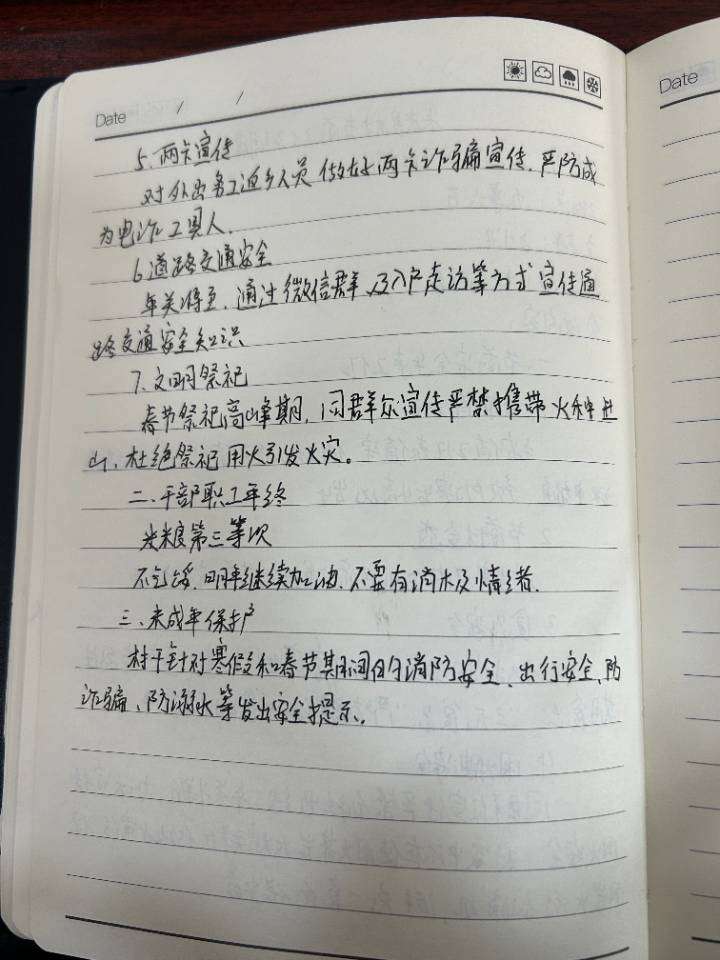 Date / /
Date
5、两卡宣传
对外出务工返乡人员做好两卡诈骗宣传，严防成
为电诈工具人。
6、道路交通安全
年关将至，通过微信群及入户走访等方式宣传道
路交通安全知识
7、文明祭祀
春节祭祀高峰期，向群众宣传严禁携带火种进
山，杜绝祭祀用火引发火灾。
二、干部职工年终
第三等次
不气馁，明年继续加油，不要有消极情绪。
三、未成年保护
村干针对寒假和春节期间的消防安全、出行安全、防
诈骗、防溺水等发出安全提示。